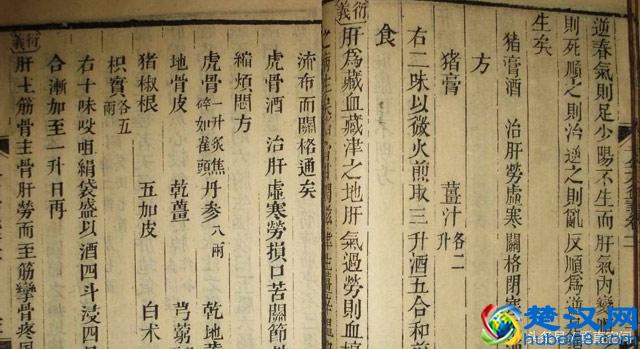 逆春氣則足少陽不生而肝氣內變
則死順之則治逆之則亂反順為逆
生矣
猪膏酒 治肝勞虛寒關格閉塞
方
猪膏 薑汁各二
右二味以微火煎取三升酒五合和煎
食
衍義 肝為藏血藏津之地肝氣過勞則血
流布而關格通矣
虎骨酒 治肝虛寒勞損口苦關節
縮煩悶方
虎骨一升炙焦碎如雀頭 丹參八兩 乾地
地骨皮 乾薑 芎藭
猪椒根 五加皮 白朮
枳實各五兩
右十味㕮咀絹袋盛以酒四斗浸四
合漸加至一升日再
衍義 肝主筋骨主骨肝勞而至筋攣骨疼
楚汉网
hubei88.com